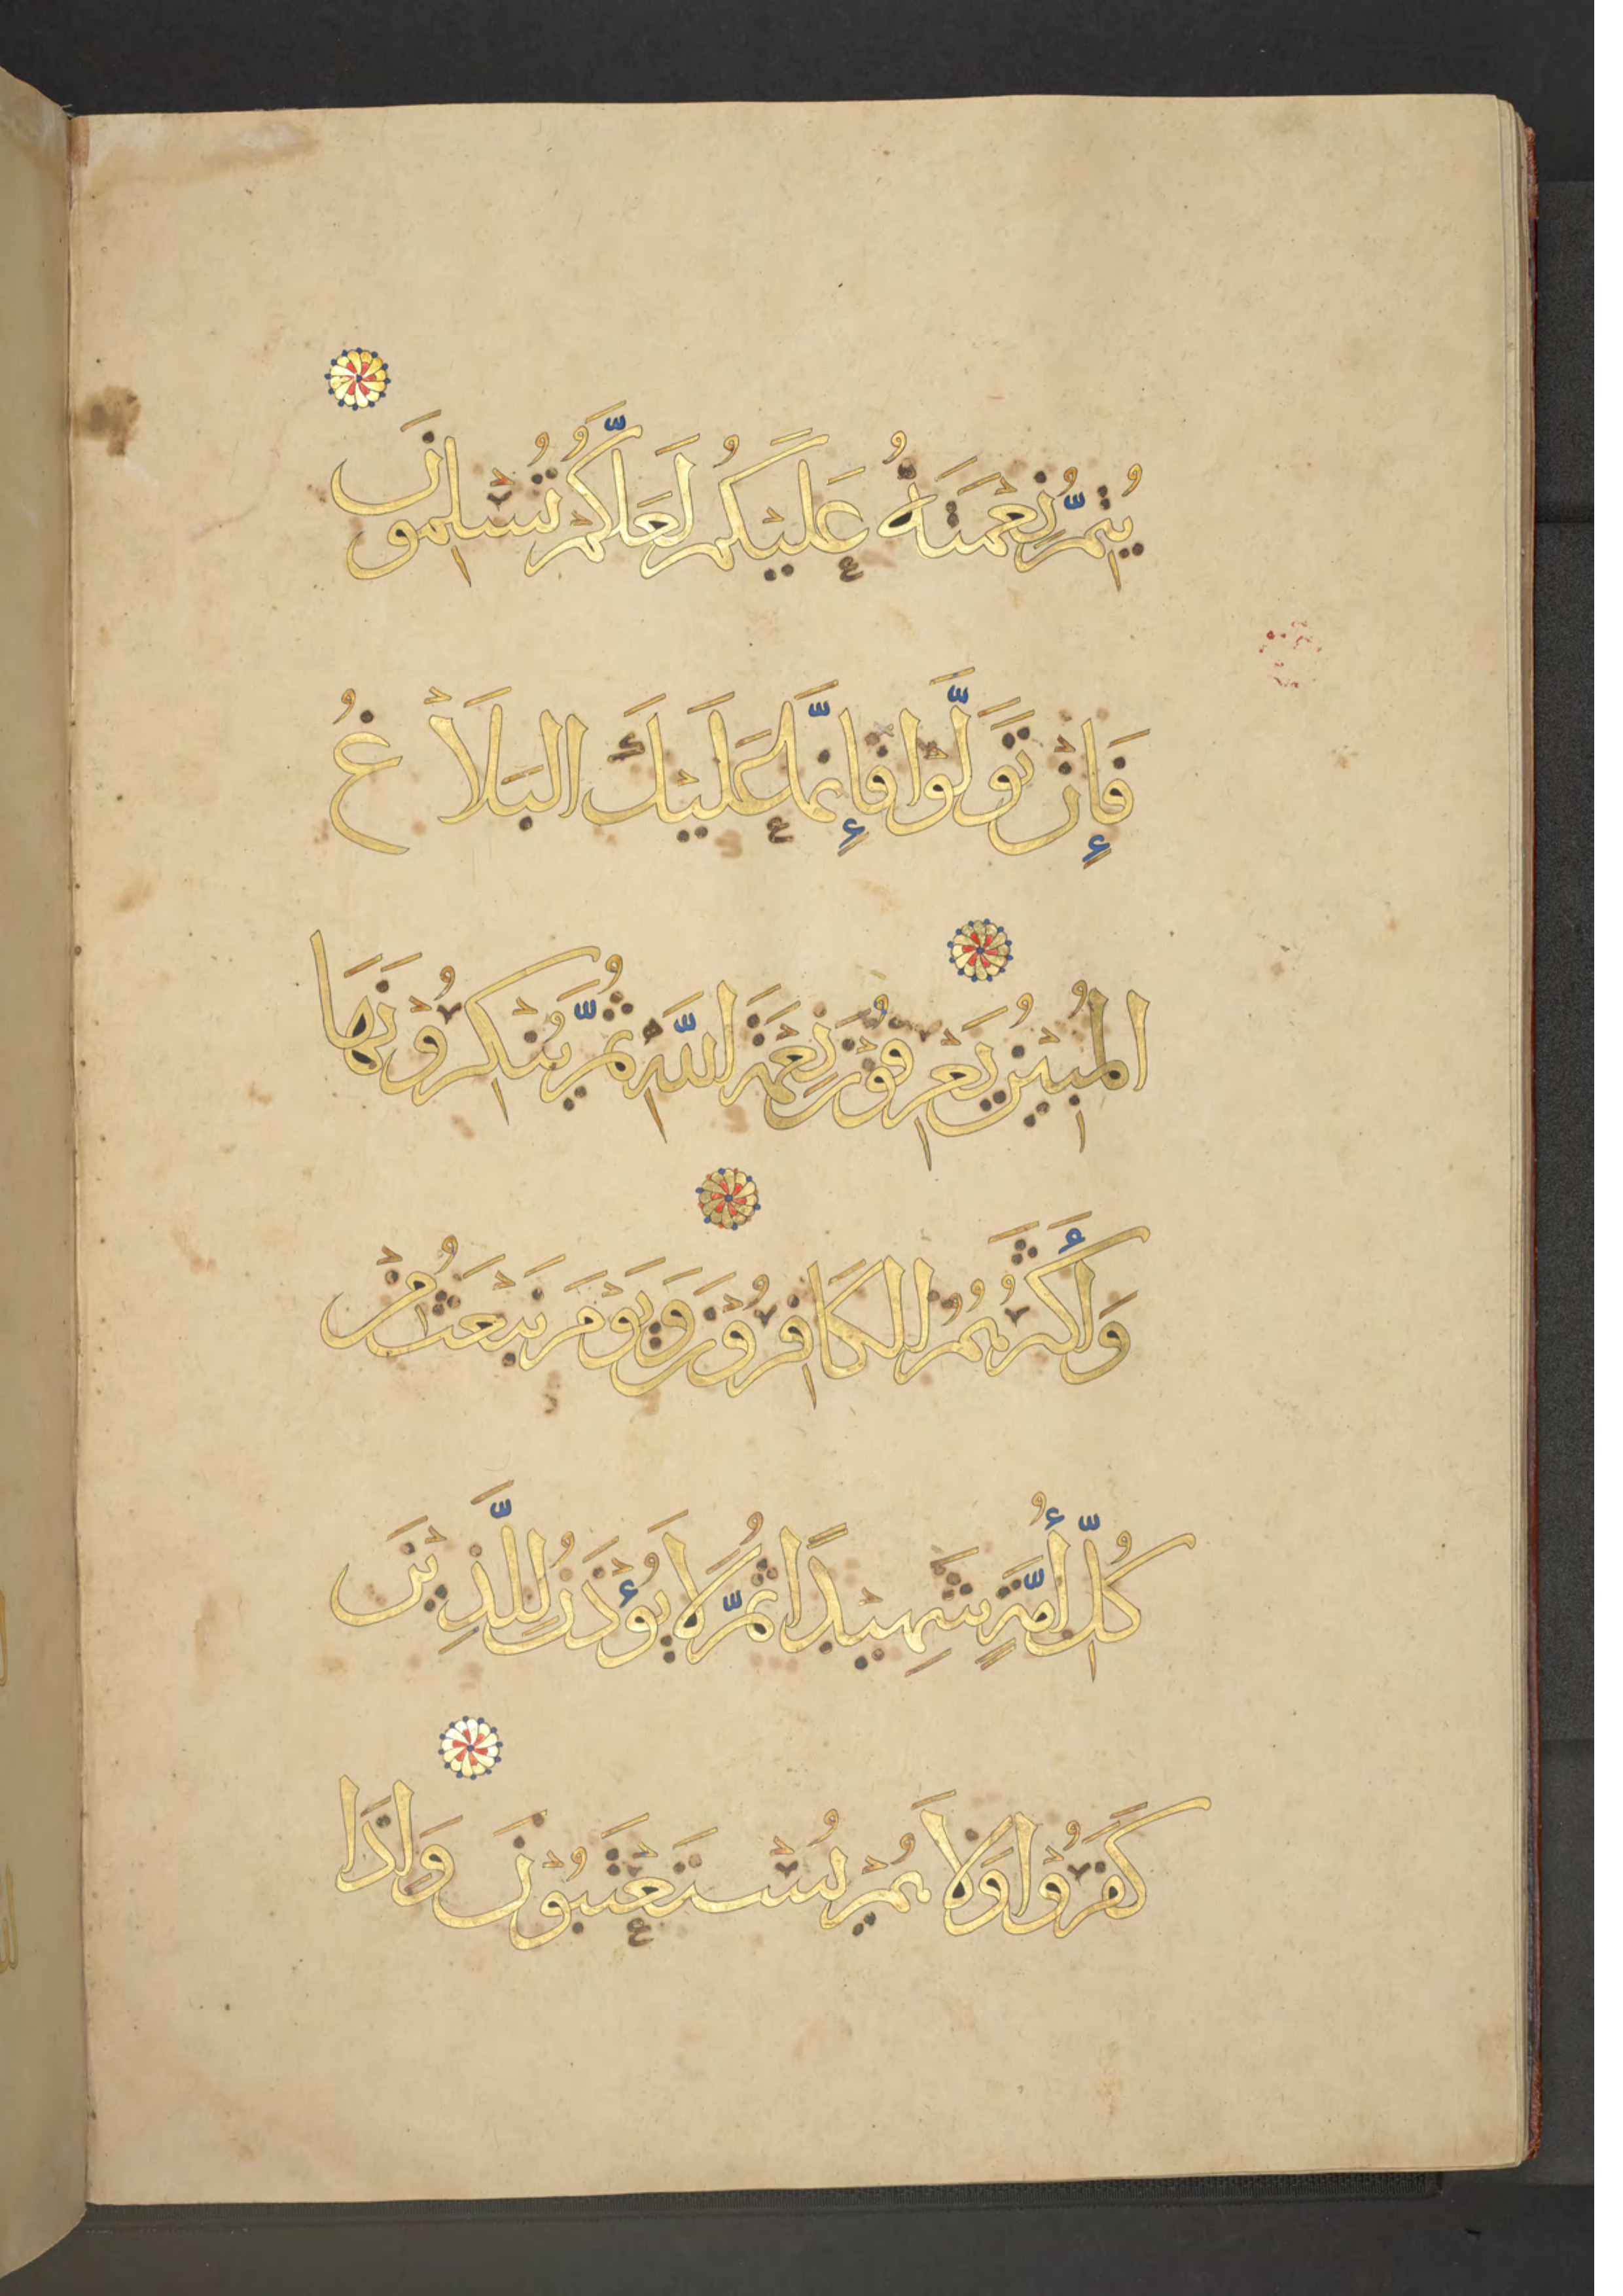 يُتِمُّ نِعْمَتَهُ عَلَيْكُمْ لَعَلَّكُمْ تُسْلِمُونَ
فَإِنْ تَوَلَّوْا فَإِنَّمَا عَلَيْكَ الْبَلَاغُ
الْمُبِيْنُ يَعْرِفُوْنَ نِعْمَةَ اللَّهِ ثُمَّ يُنْكِرُوْنَهَا
وَأَكْثَرُهُمُ الْكَافِرُوْنَ وَيَوْمَ نَبْعَثُ مِنْ
كُلِّ أُمَّةٍ شَهِيْدًا ثُمَّ لَا يُؤْذَنُ لِلَّذِيْنَ
كَفَرُوْا وَلَا هُمْ يُسْتَعْتَبُوْنَ وَإِذَا